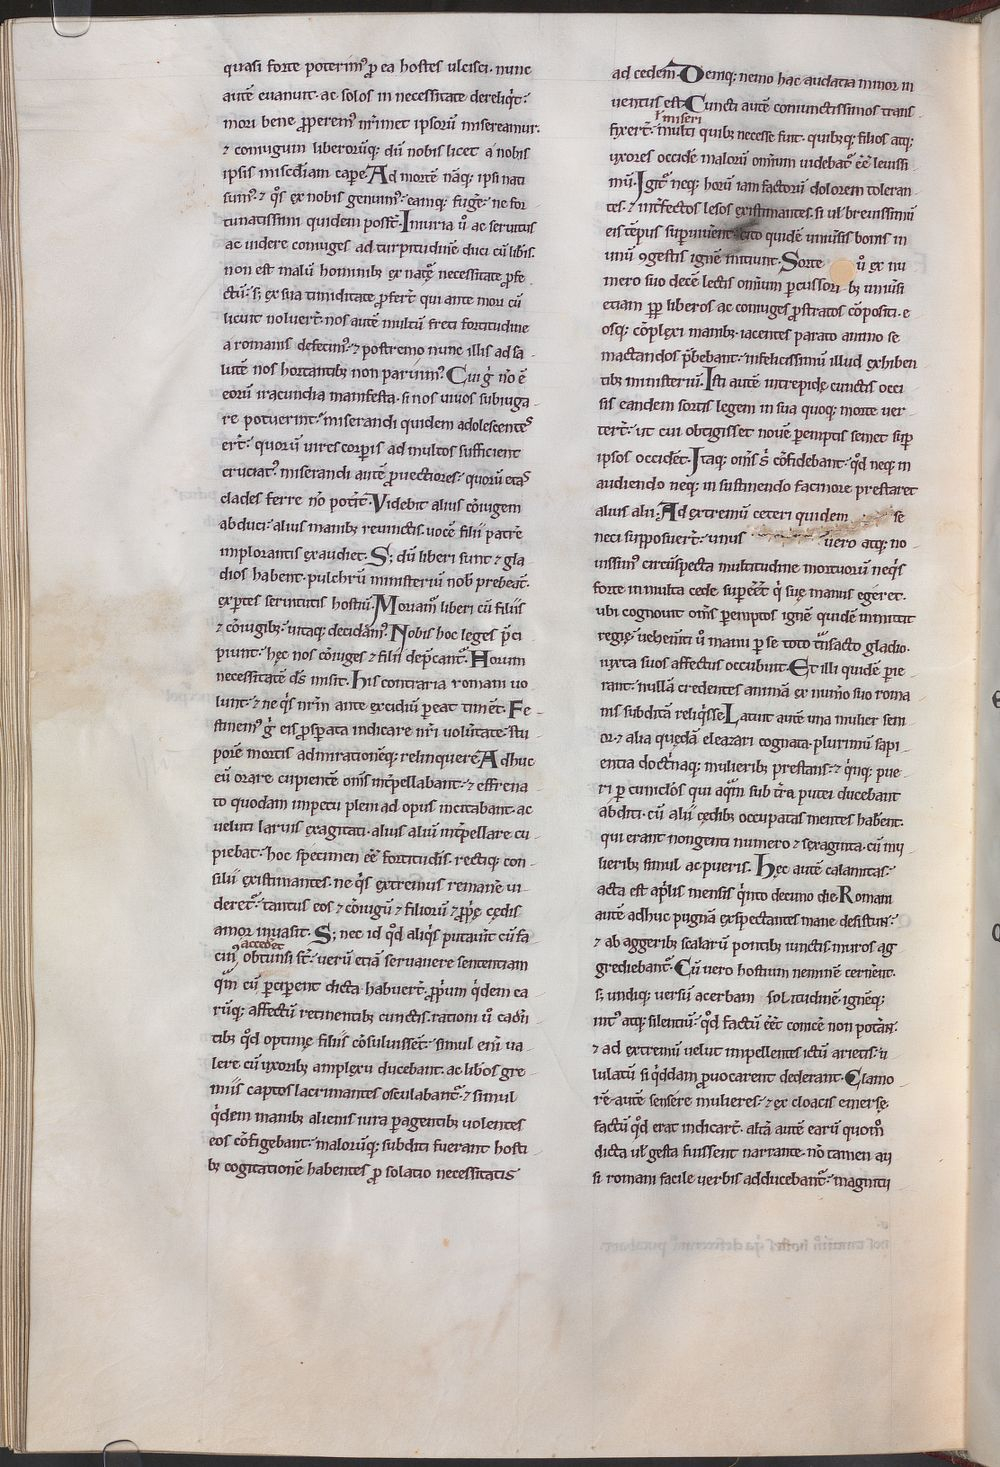 quasi forte poterim᷒ ꝓ ea hostes ulcisci. nunc
autē euanuit. ac solos in necessitate dereliq̇t.
mori bene ꝓperem᷒ nr̄imet ipsorū misereamur.
⁊ coniugum liberorūq; dū nobis licet a nobis
ipsis miscd̄iam cape. Ad mortē nāq; ipsi nati
sum᷒. ⁊ q̊s ex nobis genuim᷒. eamq; fuge. ne for
tunatissimi quidem posst̄. Iniuria ů ac seruitus
ac uidere coniuges ad turpitudinē duci cū libis.
non est malū hominibꝫ ex natę necessitate ꝓfe
ctū. sꝫ ex sua timiditate ꝓfert̄ qui ante mori cū
licuit noluert̄. nos autē multū freti fortitudine
a romanis defecim᷒. ⁊ postremo nunc illis ad sa
lutē nos hortantibꝫ non paruim᷒. Cui ġ nō ē
eorū iracundia manifesta. si nos uiuos subiuga
re potuerint. miserandi quidem adolescentes
ert̄. quorū uires corꝑis ad multos sufficient
cruciat᷒. miserandi autē ꝓuectiores. quorū etas
clades ferre nō pot̄it. Videbit alius cōiugem
abduci. alius manibꝫ reuinctis. uocē filii patrē
implorantis exaudiet. Sꝫ dū liberi sunt ⁊ gla
dios habent. pulchrū ministeriū nob̄ prebeat̄.
exꝑtes seruitutis hostiū. Moriam᷒ liberi cū filiis
⁊ cōiugibꝫ. uitaq; decidam᷒. Nobis hoc leges p̄ci
piunt. hęc nos cōiuges ⁊ filii dep̄cant᷒. Horum
necessitatē ds̄ misit. his contraria romani uo
lunt. ⁊ ne q̇s nr̄m ante excidiū ꝑeat timēt. Fe
stinem᷒ ġ eis ꝓsperata indicare nr̄i uolūtatē. stu
porē mortis admirationēq; relinquere. Adhuc
eū orare cupientē om̄s int̄pellabant. ⁊ effrena
to quodam impetu pleni ad opus incitabant. ac
ueluti laruis exagitati. alius aliū int̄pellare cu
piebat. hoc specimen eē̄ fortitudis. rectiq; con
silii existimantes. ne q̇s extremus remane ui
deret᷒. tantus eos ⁊ cōiugū ⁊ filiorū ⁊ ꝓp̄ę cędis
amor inuasit. Sꝫ nec id q̊d aliq̇s putauit cū fa
accederet
cin᷒ obtunsi st̄. uerū etiā seruauere sententiam
q̊m cū ꝑciperent dicta habuert̄. ꝓṗum q̇dem ca
rūq; affectū retinentibꝫ cunctis. rationi ů
tibꝫ q̊d optimę filiis cōsuluisset̄. simul eni ua
lere cū uxoribꝫ amplexu ducebant. ac libos gre
miis captos lacrimantes osculabant᷒. ⁊ simul
q̇dem manibꝫ alienis iura ꝑagentibꝫ uolentes
eos cōfigebant. malorūq; subditi fuerant hosti
bꝫ cogitationē habentes ꝓ solatio necessitatis
ad cedem. Deniq; nemo hac audatia minor in
uentus est. Cuncti autē coniunctissimos trans
miseri
fixert̄. multi quibꝫ necesse fuit. quibꝫq; filios atq;
uxores occidē malorū omnium uidebat᷒ eē̄ leuissi
mū. Igit᷒ neq; horū iam factorū dolorem toleran
tes. ⁊ int̄fectos lesos existimantes. si uł breuissimū
eis tēpus suꝑuiuent. cito quidē uniūsis bonis in
unū ꝯgestis ignē iniciunt. Sorte ů ex nu
mero suo decē lectis omnium ꝑcussori bꝫ uniūsi
etiam ꝓp̄ liberos ac coniuges ꝓstratos cōpositi. e
osq; cōplexi manibꝫ. iacentes parato animo se
mactandos p̄bebant. infelicissimū illud exhiben
tibꝫ ministeriū. Isti autē intrepidę cunctis occi
sis eandem sortis legem in sua quoq; morte uer
tert̄. ut cui obtigisset nouē ꝑemptis semet suꝑ
ipsos occidēt. Itaq; om̄s s̄ cōfidebant. q̊d neq; in
audiendo neq; in sustinendo facinore prestaret
alius alii. Ad extremū ceteri quidem se
neci supposuert̄. unus uero atq; no
uissim᷒ circūspecta multitudine mortuorū neq̇s
forte in multa cede suꝑeēt̄ q̇ suę manus egeret.
ubi cognouit om̄s ꝑemptos ignē quidē inmittit
regię. uehem̄ti ů manu ꝑ se toto t̄nsacto gladio.
iuxta suos affectus occubuit. Et illi quidē ꝑie
rant. nullā credentes animā ex num̄o suo roma
nis subditā reliq̇sse. Latuit autē una mulier seni
or. ⁊ alia quędā eleazari cognata. plurimū sapi
entia doctrinaq; mulieribꝫ prestans. ⁊ q̇nq; pue
ri ꝑ cuniclos qui aquā sub t̄ra putei ducebant
abditi. cū alii cędibꝫ occupatas mentes habent̄.
qui erant nongenti numero ⁊ sexaginta. cū mu
lieribꝫ simul ac pueris. Hęc autē calamitas.
acta est ap̄lis mensis q̇nto decimo die. Romani
autē adhuc pugnā exspectantes mane
⁊ ab aggeribꝫ scalarū pontibꝫ iunctis. muros ag
grediebant᷒. Cū uero hostium neminē cernent̄.
sꝫ undiq; uersū acerbam solitudinē ignēq;
int᷒ atq; silentiū. q̊d factū eēt̄ conicē non
⁊ ad extremū uelut impellentes ictū arietis. u
lulatū si q̇ddam ꝓuocarent dederant. Clamo
rē autē sensere mulieres. ⁊ ex cloacis emerse.
factū q̊d erat indicart̄. altā autē earū quom᷒
dicta uł gesta fuissent narrante. nō tamen an
si romani facile uerbis adducebant᷒. magnitu